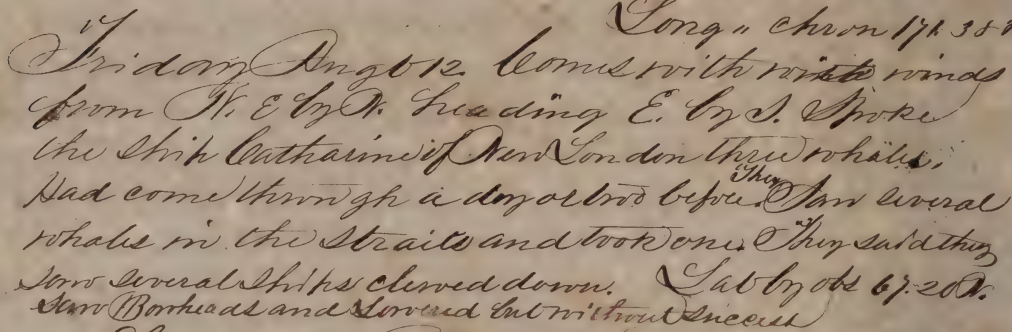 Long " chron 171.38
Friday Augt 12. Comes with winds
from N. E by N. heading E. by S. Spoke
the Ship Catharine of New London three whales;
Had come through a day or two before. They Saw several
whales in the Straits and took one. They said they
saw several Ships clewed down. Lat by obs 67-20 N.
Saw Bowheads and Lowered but without Success